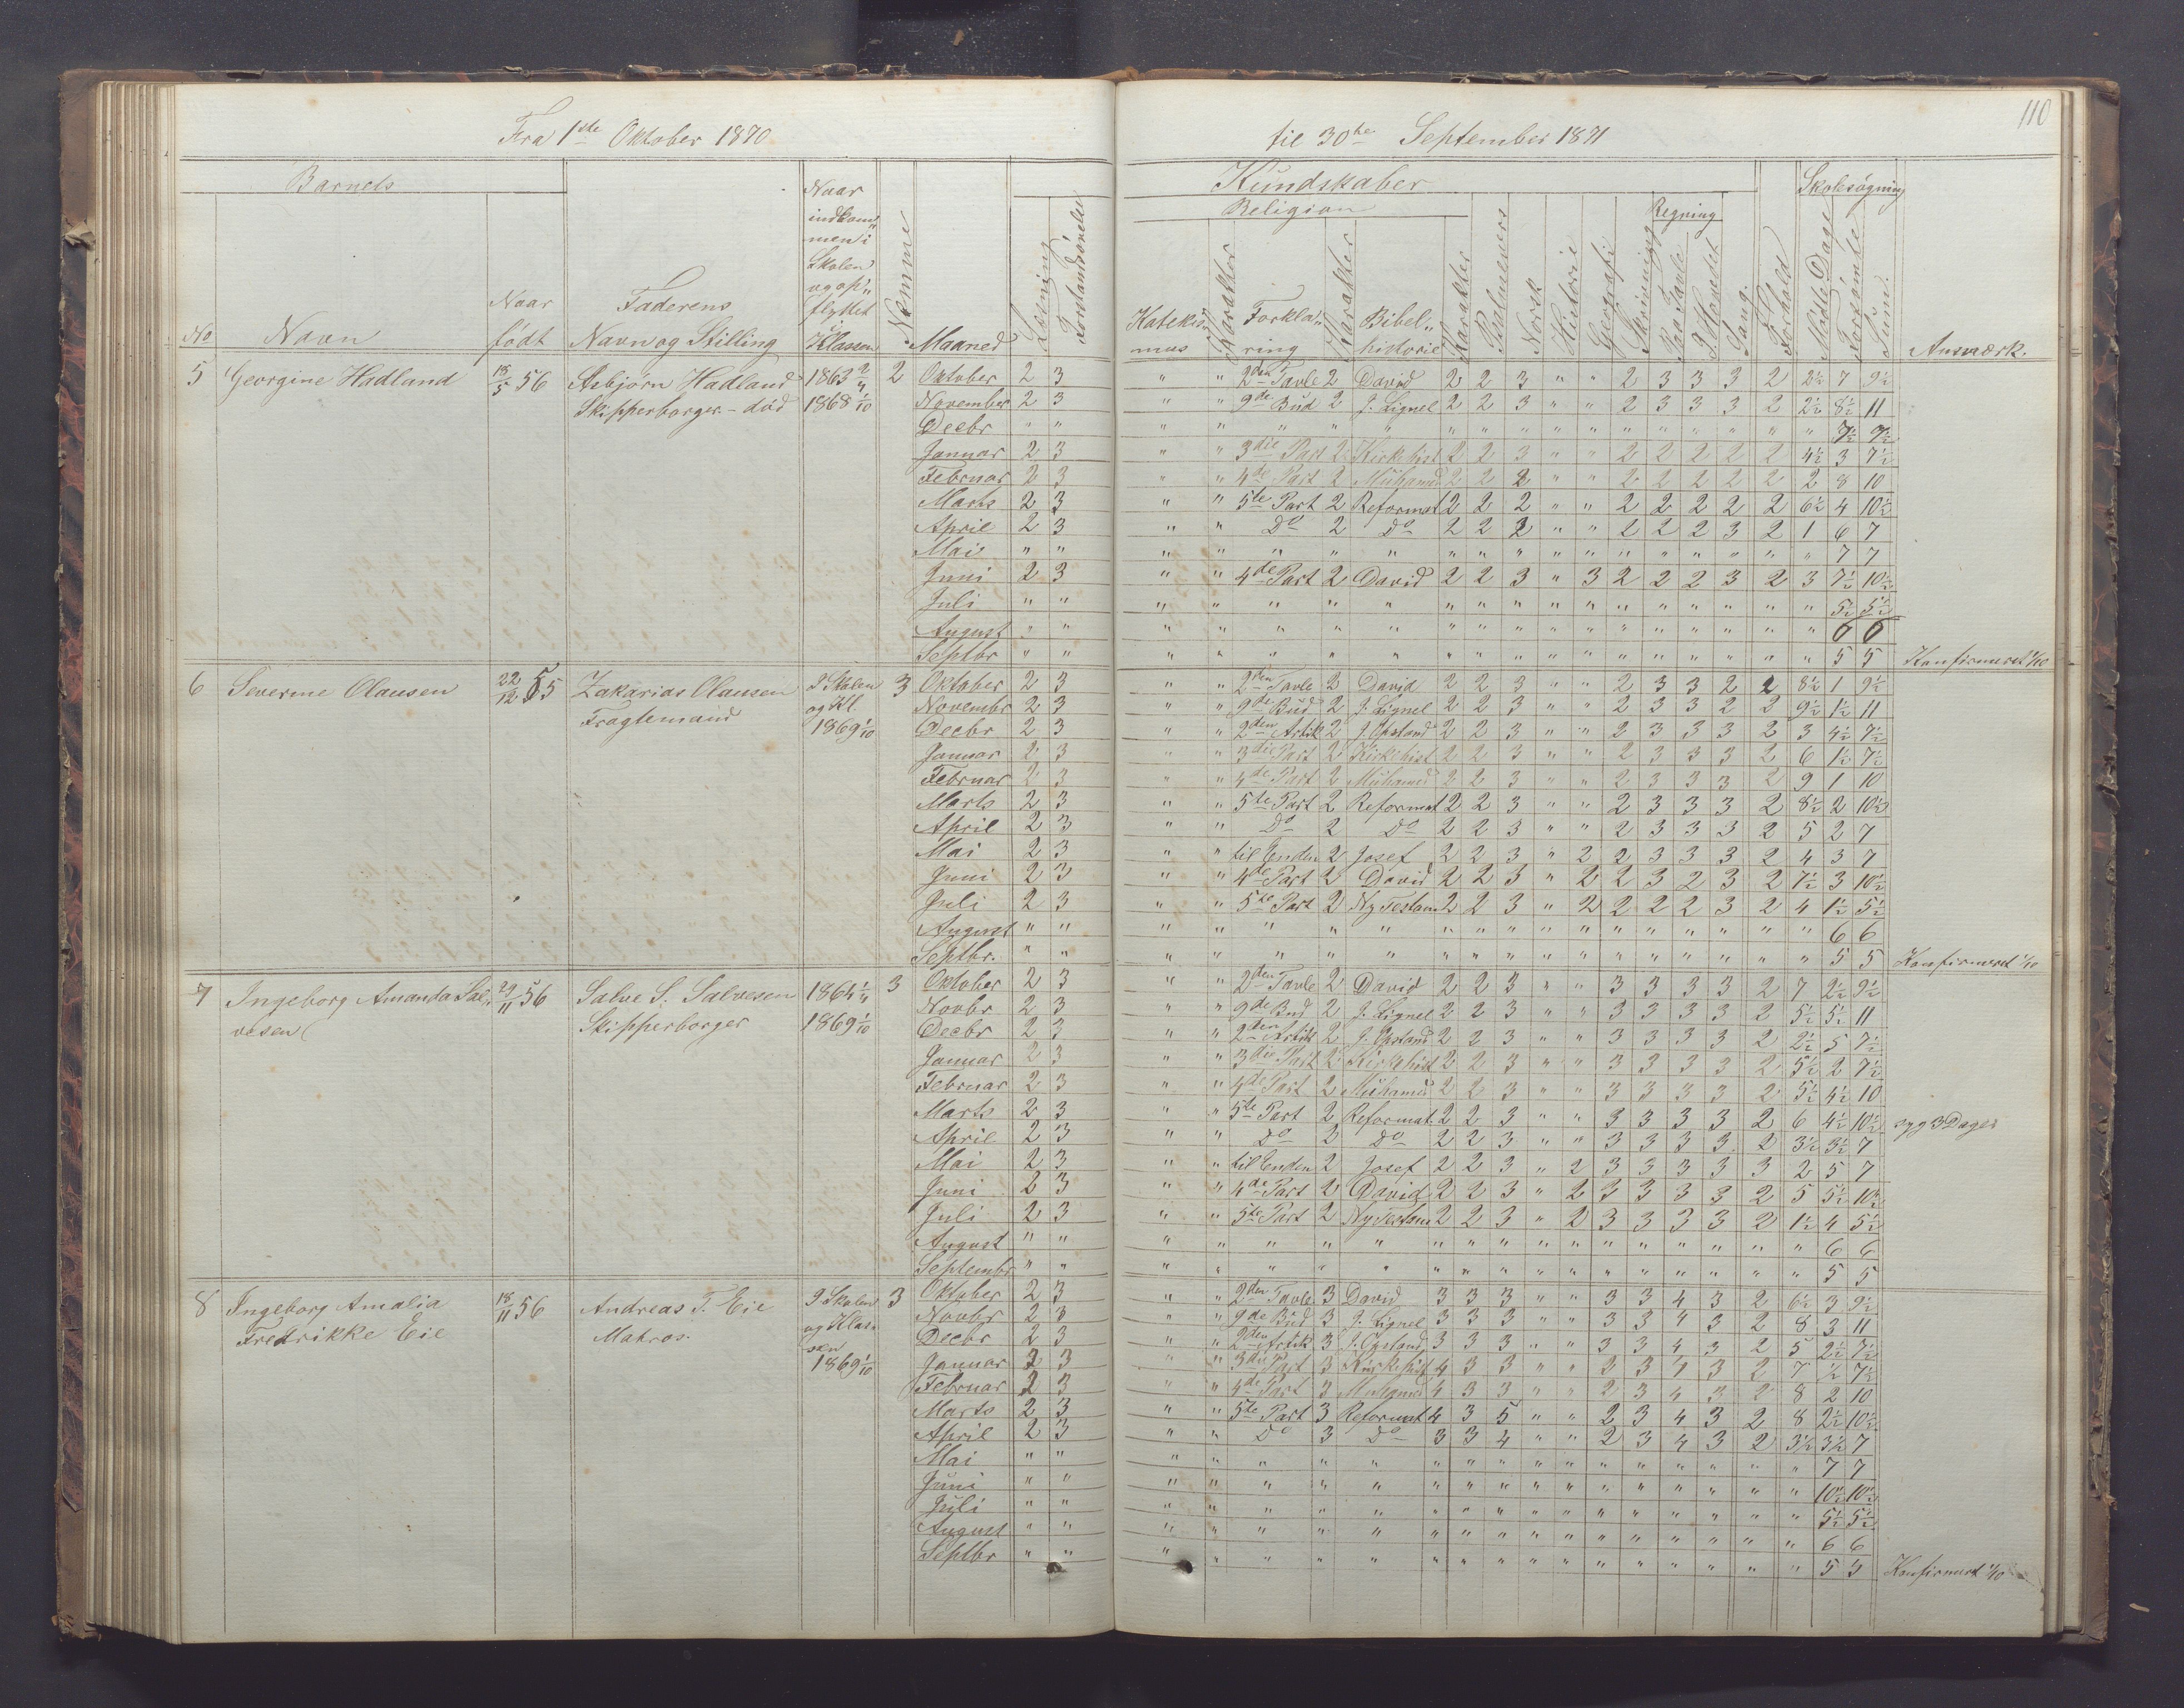 110
Fra 1ste Oktober 1870 til 30te September 1871
Barnets Kundskaber Skolesøgning
Religion Regning
No Navn Naar født Faderens Navn og Stilling Naar indkommen i Skolen og opflyttet i Klassen Nemme Maaned Læsning Forstandsøvelse Katekismus Karakter Forklaring Karakter Bibelhistorie Karakter Psalmevers Norsk Historie Geografi Skrivning Paa Tavle I Hovedet Sang Forhold Mødte Dage Forsømte Sum Anmærk.
5 Georgine Hadland 18/5 56 Asbjørn Hadland 1863 2 Oktober 2 3 " " 2den Tavle 2 David 2 2 3 " " 2 3 3 3 2 2½ 7 9½
Skipperborger - död 1868 1/10 November 2 3 " " 9de Bud 2 J. Lignel 2 2 3 " " 2 3 3 3 2 2½ 8½ 11
Decbr " " " " " " " " " " " " " " " " " " 7½ 7½
Januar 2 3 " " 3die Part 2 Kirkehist 2 2 3 " " 2 2 2 2 2 4½ 3 7½
Februar 2 3 " " 4de Part 2 Muhamed 2 2 2 " " 2 2 2 2 2 2 8 10
Marts 2 3 " " 5te Part 2 Reformat 2 2 2 " " 2 2 2 2 2 6½ 4 10½
April 2 3 " " Do 2 Do 2 2 2 " " 2 2 2 3 2 1 6 7
Mai " " " " " " " " " " " " " " " " " " 7 7
Juni 2 3 " " 4de Part 2 David 2 2 3 " 3 2 2 2 3 2 3 7½ 10½
Juli " " " " " " " " " " " " " " " " " " 5½ 5½
August " " " " " " " " " " " " " " " " " " 6 6
Septbr " " " " " " " " " " " " " " " " " " 5 5 Konfirmeret 1/10
6 Severine Olausen 22/12 55 Zakarias Olausen I Skolen 3 Oktober 2 3 " " 2den Tavle 2 David 2 2 3 " " 2 3 3 2 2 8½ 1 9½
Fragtemand og Kl. Novembr 2 3 " " 9de Bud 2 J. Lignel 2 2 3 " " 2 3 3 2 2 9½ 1½ 11
1869 1/10 Decbr 2 3 " " 2den Artik 2 J. Opstand 2 2 3 " " 2 3 3 3 2 3 4½ 7½
Januar 2 3 " " 3die Part 2 Kirkehist 2 2 3 " " 2 3 3 3 2 6 1½ 7½
Februar 2 3 " " 4de Part 2 Muhamed 2 2 3 " " 2 3 3 3 2 9 1 10
Marts 2 3 " " 5te Part 2 Reformat 2 2 3 " " 2 3 3 3 2 8½ 2 10½
April 2 3 " " Do 2 Do 2 2 3 " " 2 3 3 3 2 5 2 7
Mai 2 3 " " til Enden 2 Josef 2 2 3 " 2 2 3 3 3 2 4 3 7
Juni 2 3 " " 4de Part 2 David 2 2 3 " 2 2 3 2 3 2 7½ 3 10½
Juli 2 3 " " 5te Part 2 Ny Testam 2 2 3 " 2 2 2 2 3 2 4 1½ 5½
August " " " " " " " " " " " " " " " " " " 6 6
Septbr. " " " " " " " " " " " " " " " " " " 5 5 Konfirmeret 1/10
7 Ingeborg Amanda Sal- 29/11 56 Salve S. Salvesen 1864 3 Oktober 2 3 " " 2den Tavle 2 David 2 2 3 " " 3 3 3 3 2 7 2½ 9½
vesen Skipperborger 1869 1/10 Novbr 2 3 " " 9de Bud 2 J. Lignel 2 2 3 " " 3 3 3 3 2 5½ 5½ 11
Decbr 2 3 " " 2den Artik 2 J. Opstand 2 2 3 " " 3 3 3 3 2 2½ 5 7½
Januar 2 3 " " 3die Part 2 Kirkehist 2 2 3 " " 3 3 3 3 2 5½ 2 7½
Februar 2 3 " " 4de Part 2 Muhamed 2 2 3 " " 3 3 3 3 2 5½ 4½ 10
Marts 2 3 " " 5te Part 2 Reformat. 2 2 3 " " 3 3 3 3 2 6 4½ 10½ syg 3 Dage
April 2 3 " " Do 2 Do 2 2 3 " " 3 3 3 3 2 3½ 3½ 7
Mai 2 3 " " til Enden 2 Josef 2 2 3 " 2 3 3 3 3 3 2 5 7
Juni 2 3 " " 4de Part 2 David 2 2 3 " 2 3 3 3 3 2 5 5½ 10½
Juli 2 3 " " 5te Part 2 Ny Testam 2 2 3 " 2 3 3 3 3 2 1½ 4 5½
August " " " " " " " " " " " " " " " " " " 6 6
Septembr " " " " " " " " " " " " " " " " " " 5 5
8 Ingeborg Amalia 18/11 56 Andreas T. Eie I Skolen 3 Oktober 2 3 " " 2den Tavle 3 David 3 3 3 " " 3 3 4 3 2 6½ 3 9½
Fredrikke Eie Matros. og Klas- Novbr 2 3 " " 9de Bud 3 J. Lignel 3 3 3 " " 3 3 4 3 2 8 3 11
sen Decbr 2 3 " " 2den Artik 3 J. Opstand 3 3 3 " " 3 3 4 3 2 5 2½ 7½
1869 1/10 Januar 2 3 " " 3die Part 3 Kirkehist 4 3 3 " " 2 3 4 3 2 7 ½ 7½
Februar 2 3 " " 4de Part 3 Muhamed 4 3 3 " " 2 3 4 3 2 8 2 10
Marts 2 3 " " 5te Part 3 Reformat 4 3 5 " " 2 3 4 3 2 8 2½ 10½
April 2 3 " " Do 3 Do 3 3 4 " " 2 3 4 3 2 3½ 3½ 7
Mai " " " " " " " " " " " " " " " " " " 7 7
Juni " " " " " " " " " " " " " " " " " " 10½ 10½
Juli " " " " " " " " " " " " " " " " " " 5½ 5½
August " " " " " " " " " " " " " " " " " " 6 6
Septbr " " " " " " " " " " " " " " " " " " 5 5 Konfirmert 1/10